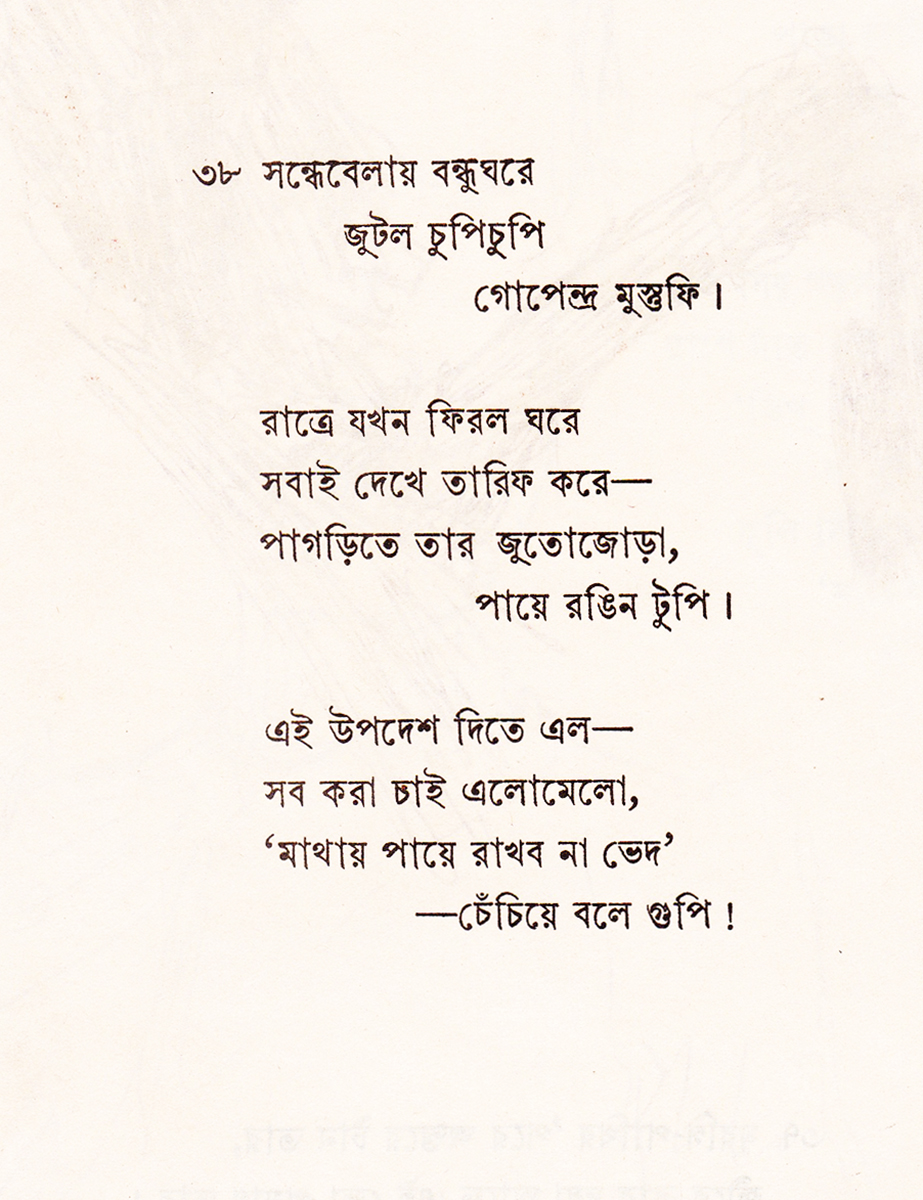 ৩৮ সন্ধেবেলায় বন্ধুঘরে
জুটল চুপিচুপি
গোপেন্দ্র মুস্তুফি।
রাত্রে যখন ফিরল ঘরে
সবাই দেখে তারিফ করে—
পাগড়িতে তার জুতোজোড়া,
পায়ে রঙিন টুপি।
এই উপদেশ দিতে এল—
সব করা চাই এলোমেলো,
‘মাথায় পায়ে রাখব না ভেদ’
—চেঁচিয়ে বলে গুপি!